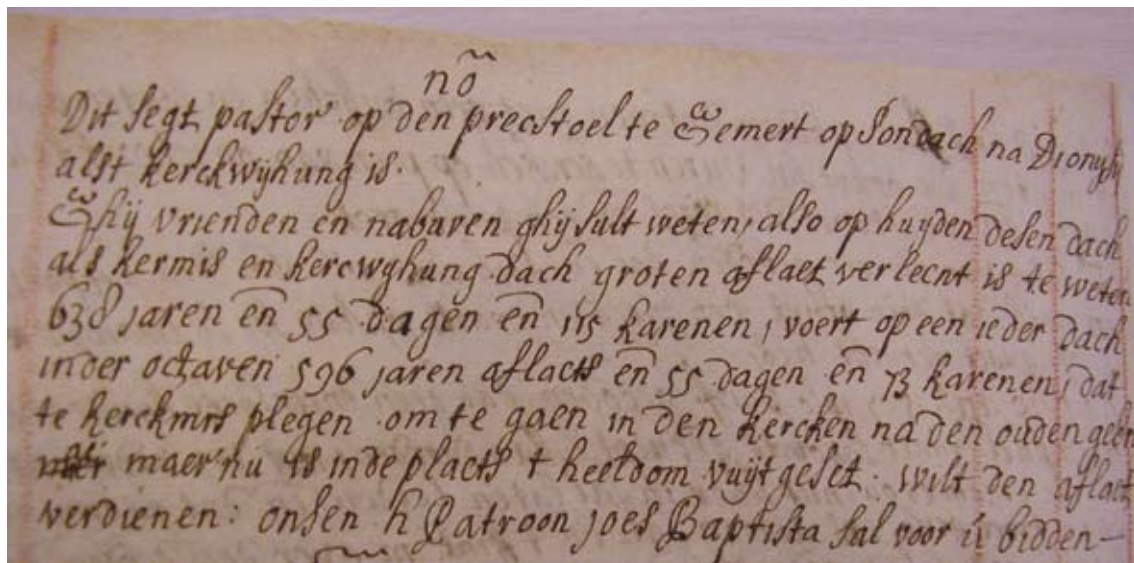 nō
Dit segt pastor op den precstoel te Gemert op Sondach na Dionysy
alst kerckwijhung is.
Ghij vrienden en naburen ghij sult weten, also op huijden desen dach
als kermis en kercwyhung dach groten aflaet verleent is te weten
638 jaren en̄ 55 dagen en̄ 115 karenen, voert op een ieder dach
inder octaven 596 jaren aflaets en̄ 55 dagen en̄ 73 karenen, dat
te kerckmrs plegen om te gaen in den kercken na den ouden
maer nu is inde plaets t heeldom vuijt geset. wilt den aflaet
verdienen: onsen h Patroon joes Baptista sal voor ú bidden—